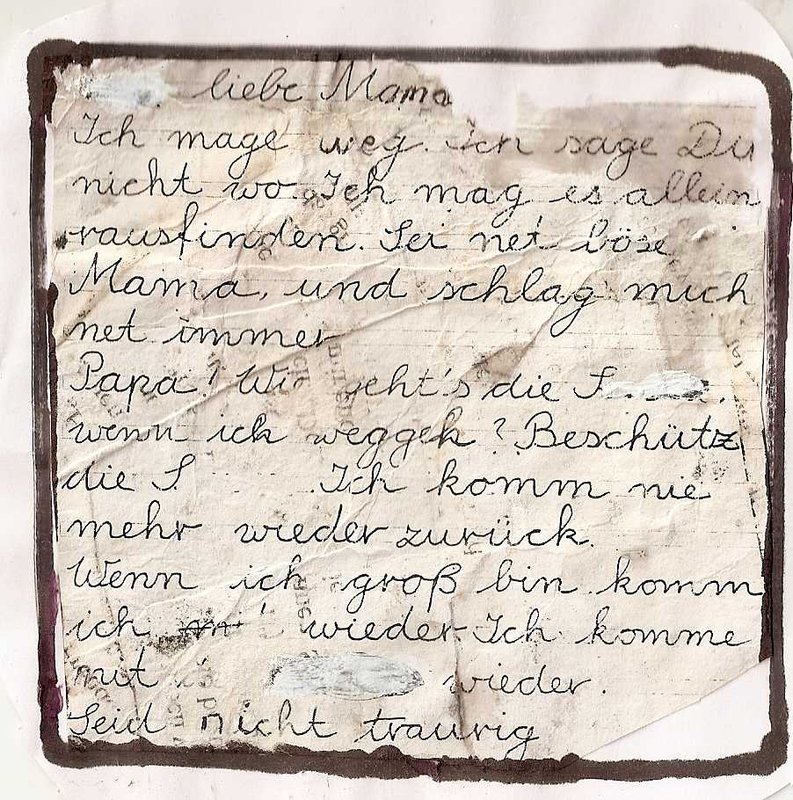 liebe Mama
Ich mage weg. Ich sage Du
nicht wo. Ich mag es allein
rausfinden. Sei net böse
Mama, und schlag mich
net immer
Papa! Wie geht's die S
wenn ick weggeh? Beschütz
die S Ich komm nie
mehr wieder zurück.
Wenn ich groß bin komm
ich wieder Ich komme
mit wieder.
Seid nicht traurig